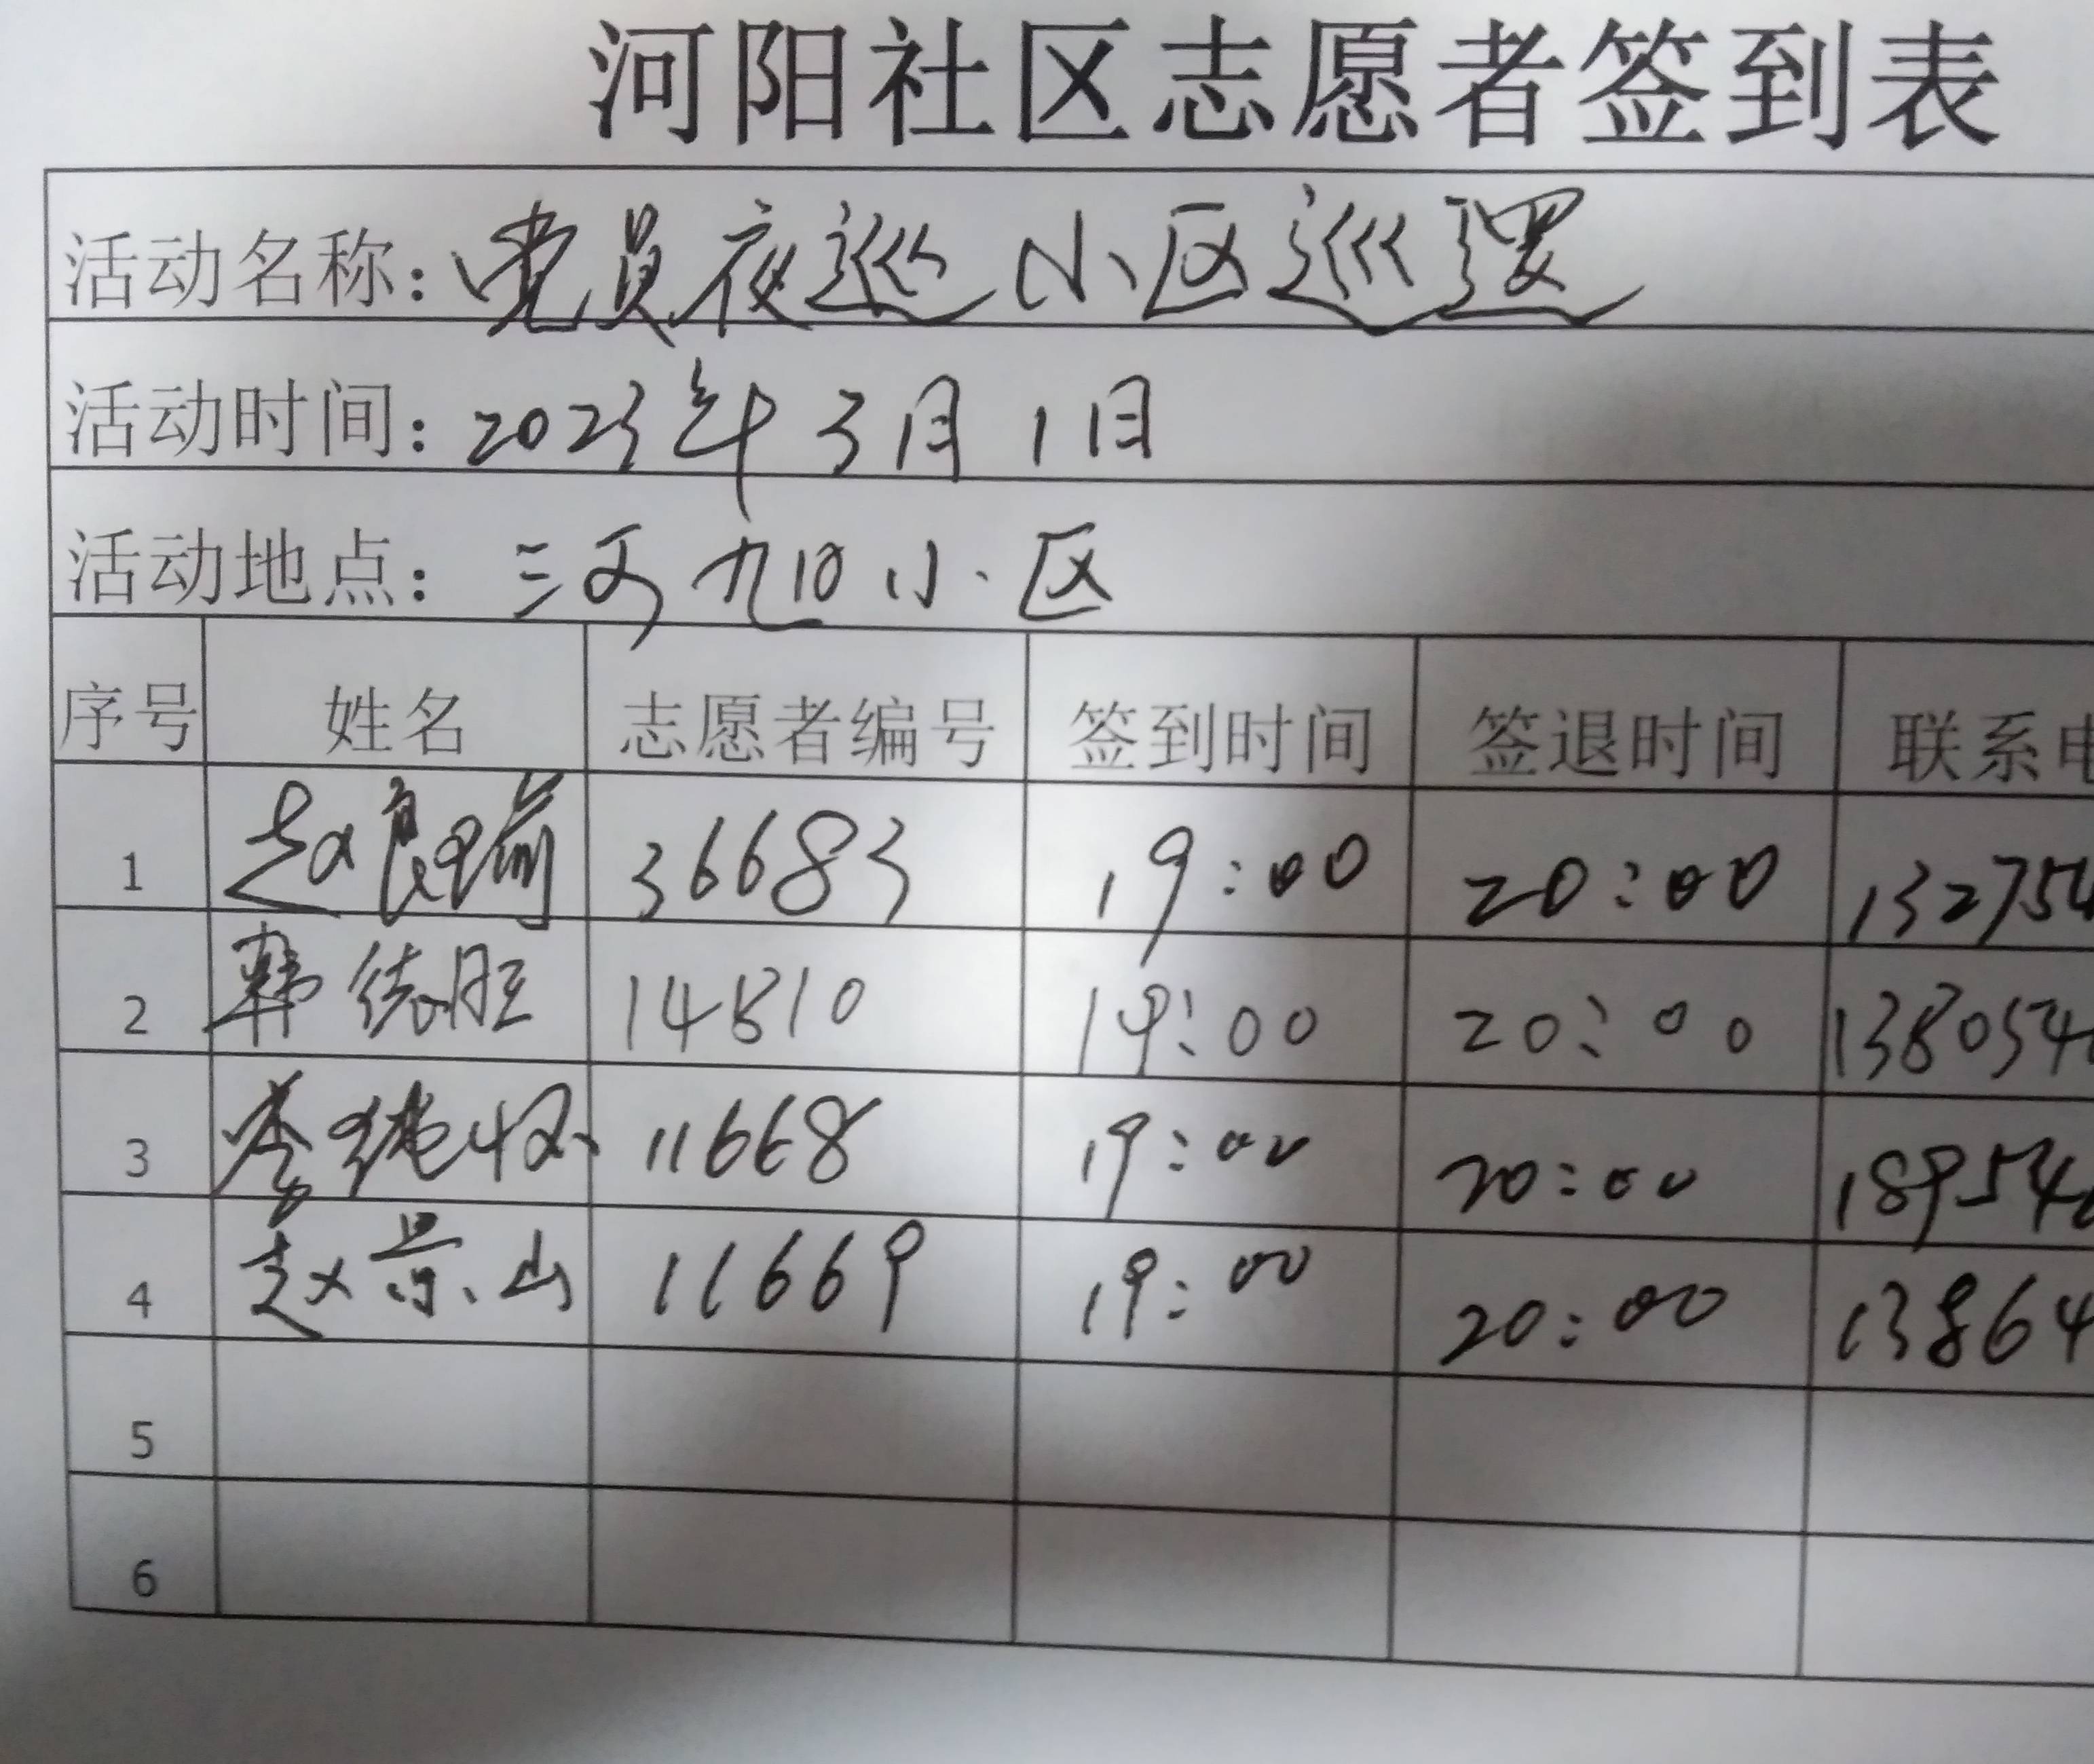 河阳社区志愿者签到表
活动名称：党员夜巡小区巡逻
活动时间：2023年3月1日
活动地点：三 九10小区
序号 姓名 志愿者编号 签到时间 签退时间 联系电
1 赵良瑜 36683 19:00 20:00 132754
2 韩德胜 14810 19:00 20:00 138054
3 李 11668 19:00 20:00 18954
4 赵景山 11669 19:00 20:00 13864
5
6